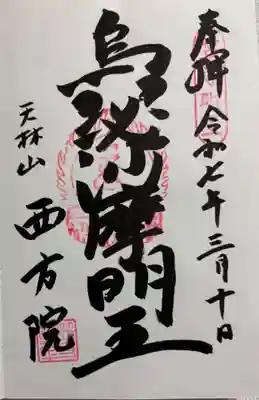 奉拝 令和七年三月十日
烏蒭沙摩明王
天林山 西方院